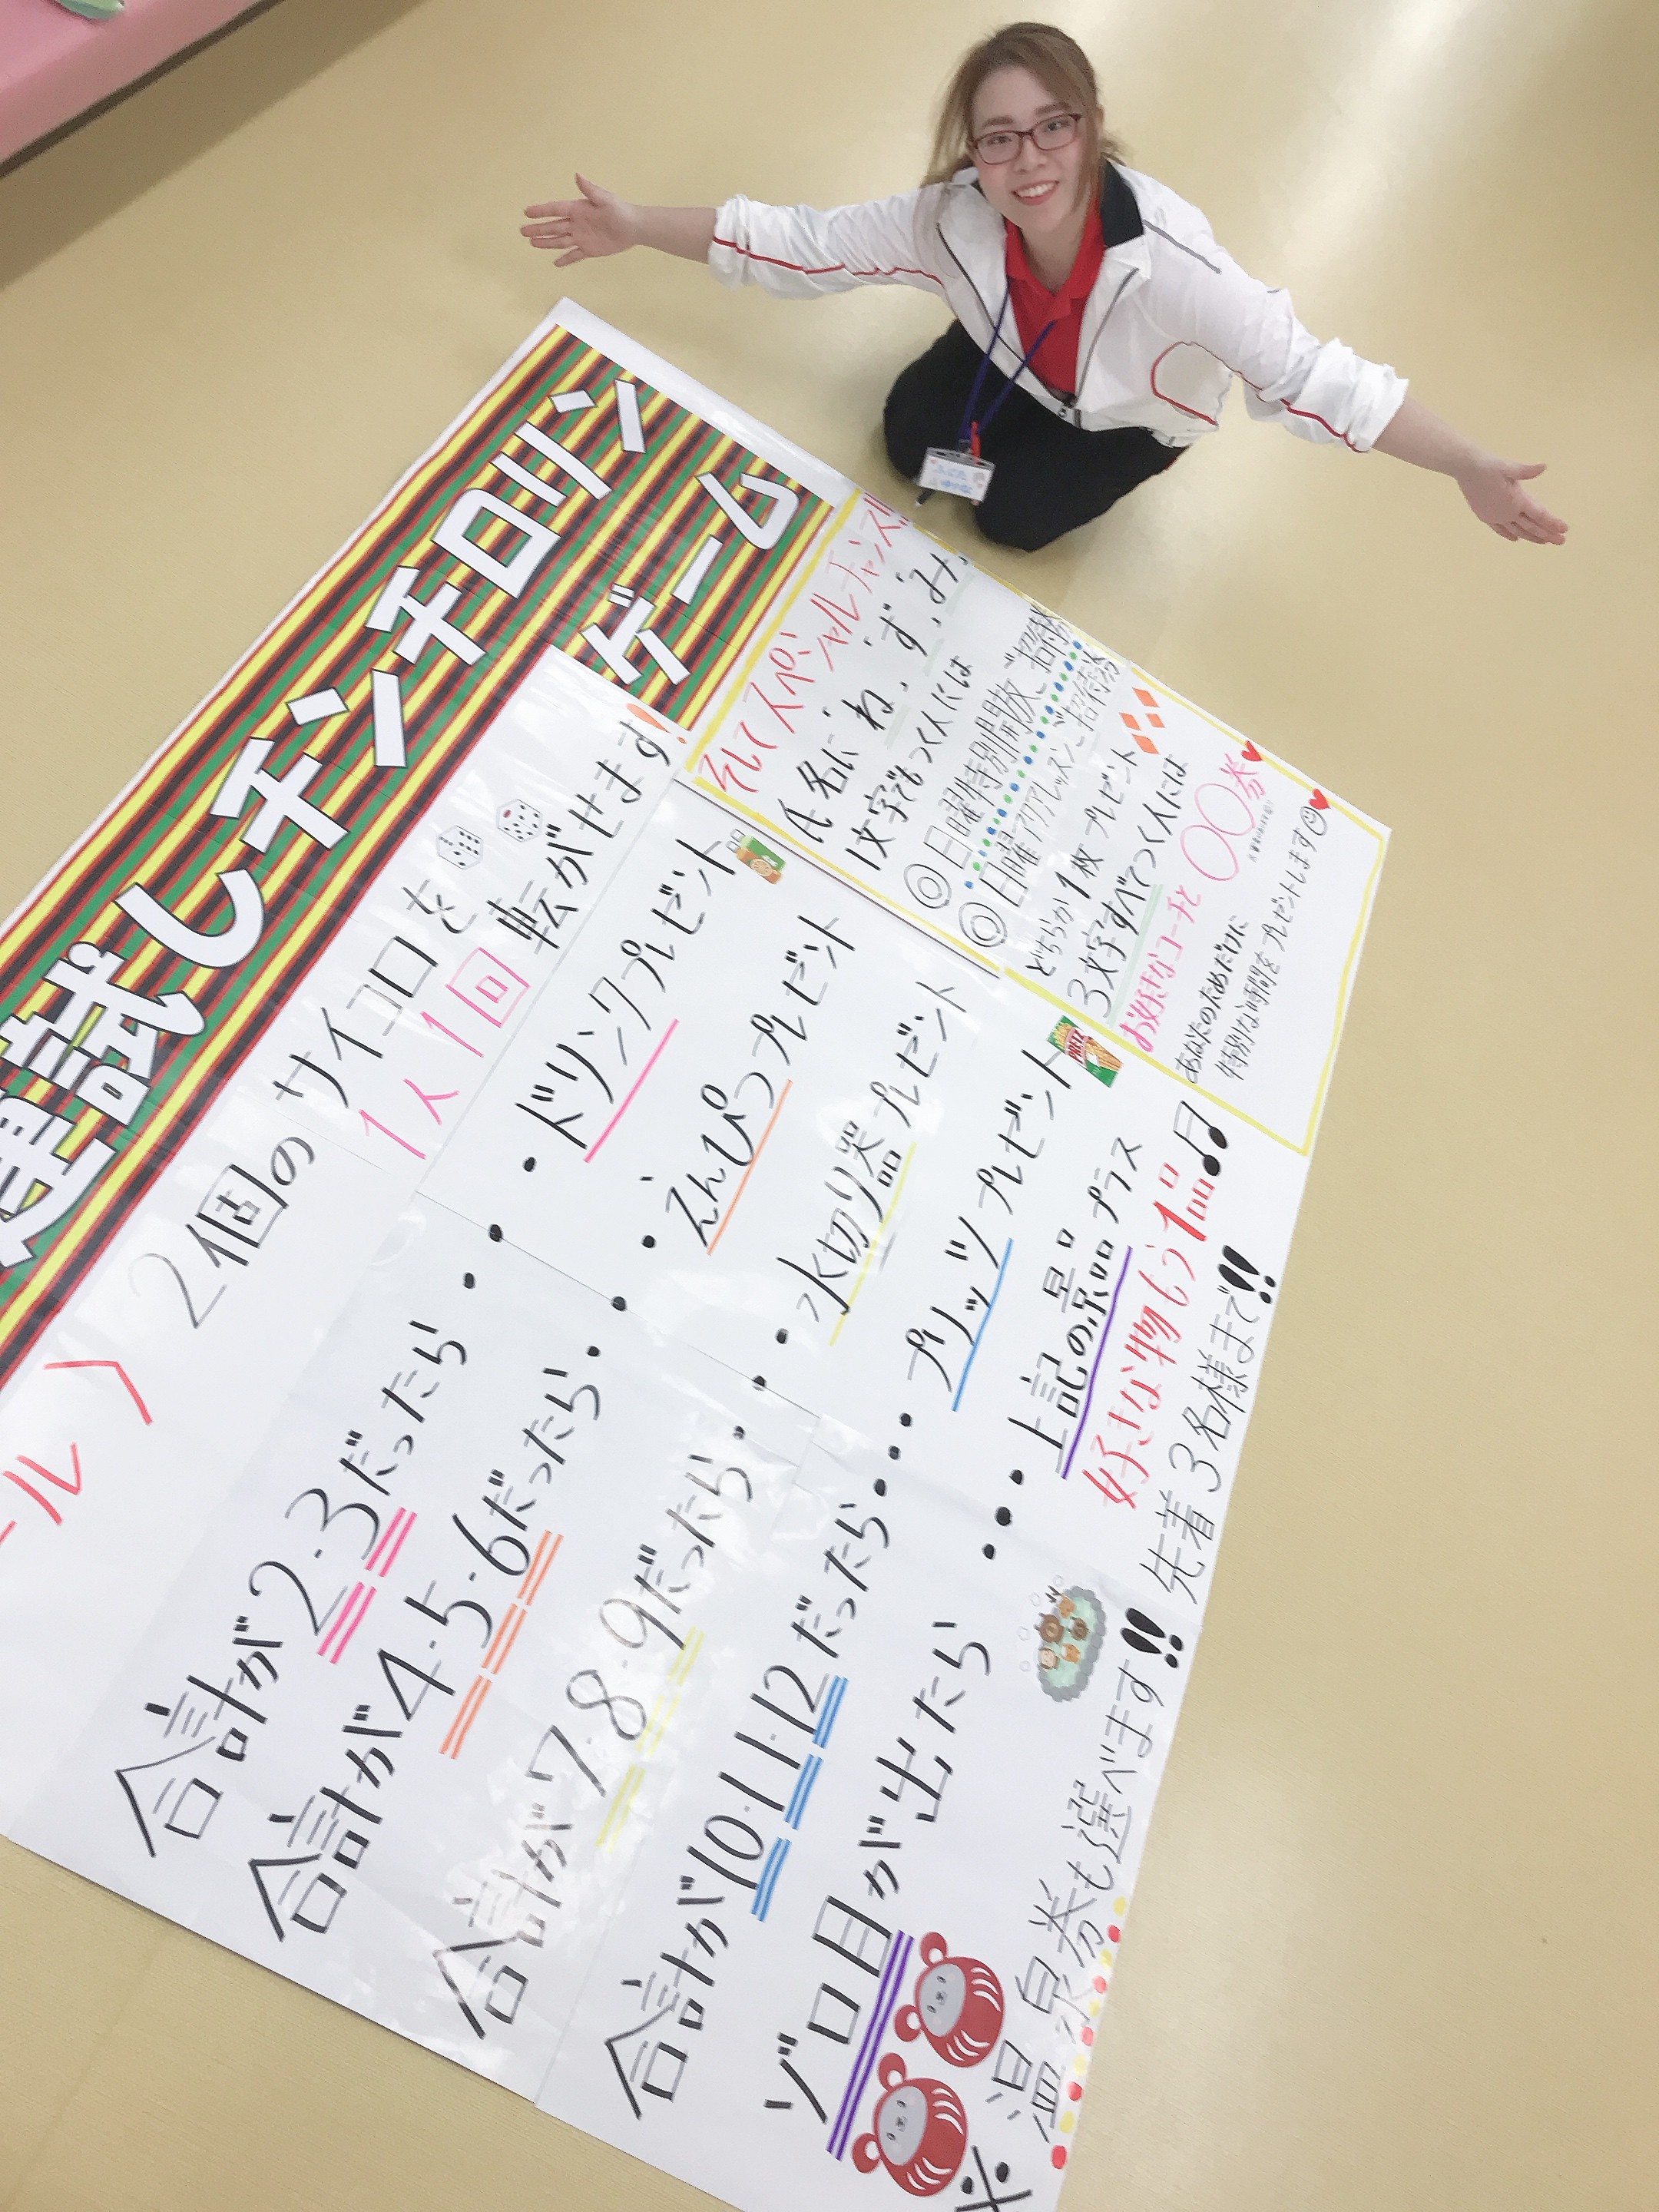 運試しチンチロリン
ゲーム
ール 〉
2個のサイコロを
1人1回転がせます!
合計が2・3だったら・・・ドリンクプレゼント
合計が4・5・6だったら・・・えんぴつプレゼント
合計が7・8・9だったら・・・水切り器プレゼント
合計が10・11・12だったら・・・プリッツプレゼント
PRETZ
ゾロ目が出たら・・・上記の景品プラス
好きな物もう1品♫
先着3名様まで!!
※温泉券も選べます!!
そしてスペシャルチャンス!!
氏名に'ね'、'ず'、'み'、
1文字でもつく人には
◎日曜特別開放ご招待券
◎日曜アクアレッスンご招待券
どちらか1枚プレゼント
3文字すべてつく人には
お好きなコーチと〇〇券♥
あなたのためだけに
特別な時間をプレゼントします☺♥